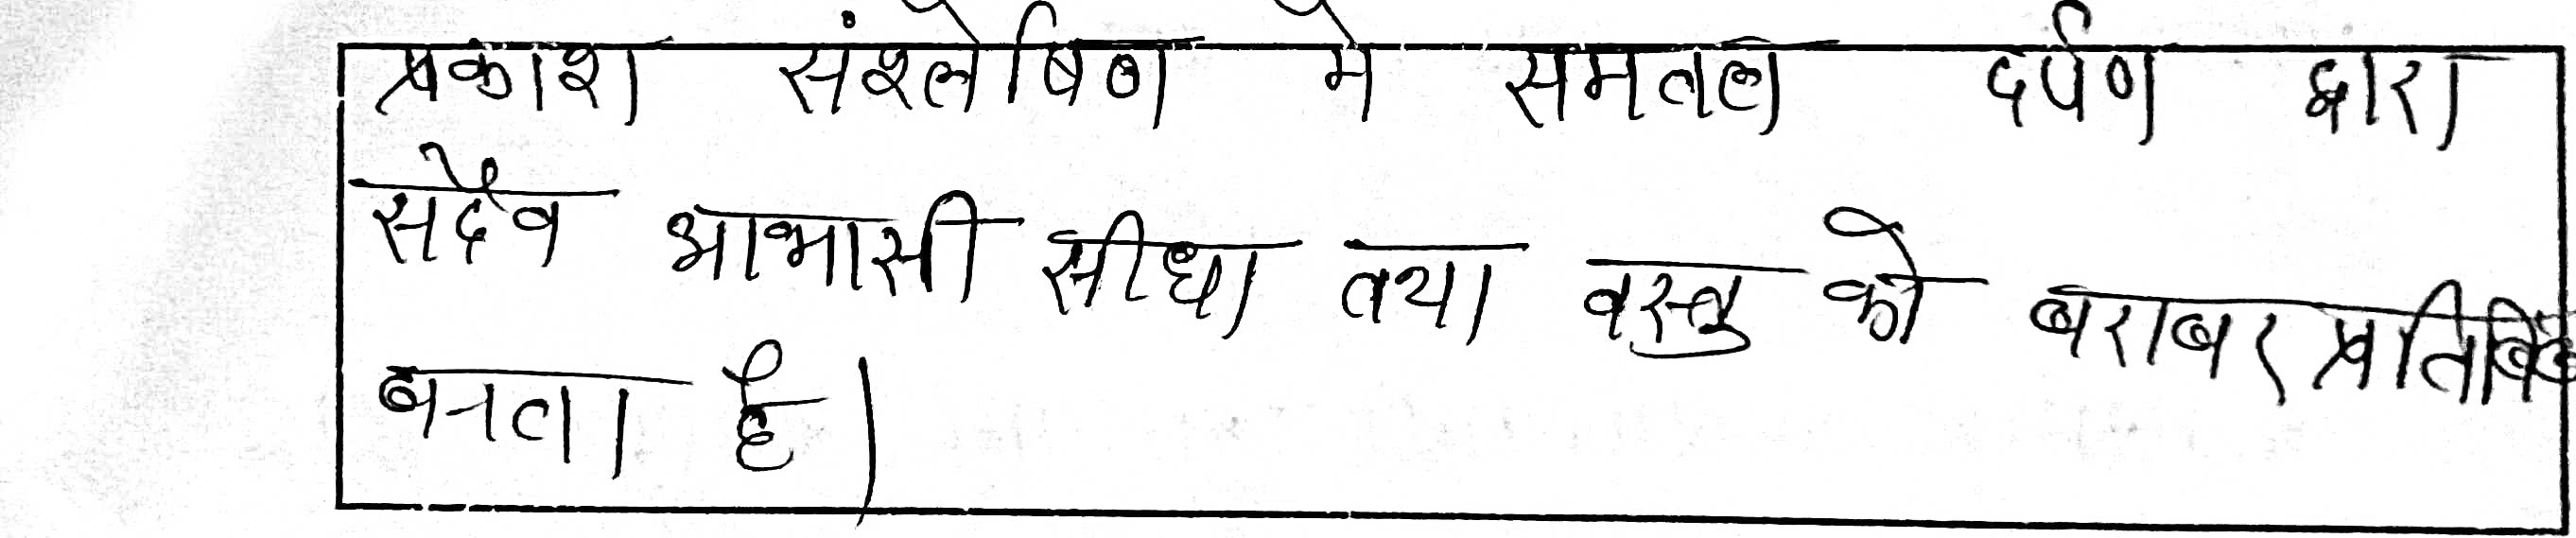 प्रकाश संश्लेषिण मे समतल दर्पण द्वारा
सदैव आभासी सीधा तथा वस्तु को बराबर प्रतिबिंब
बनता है।